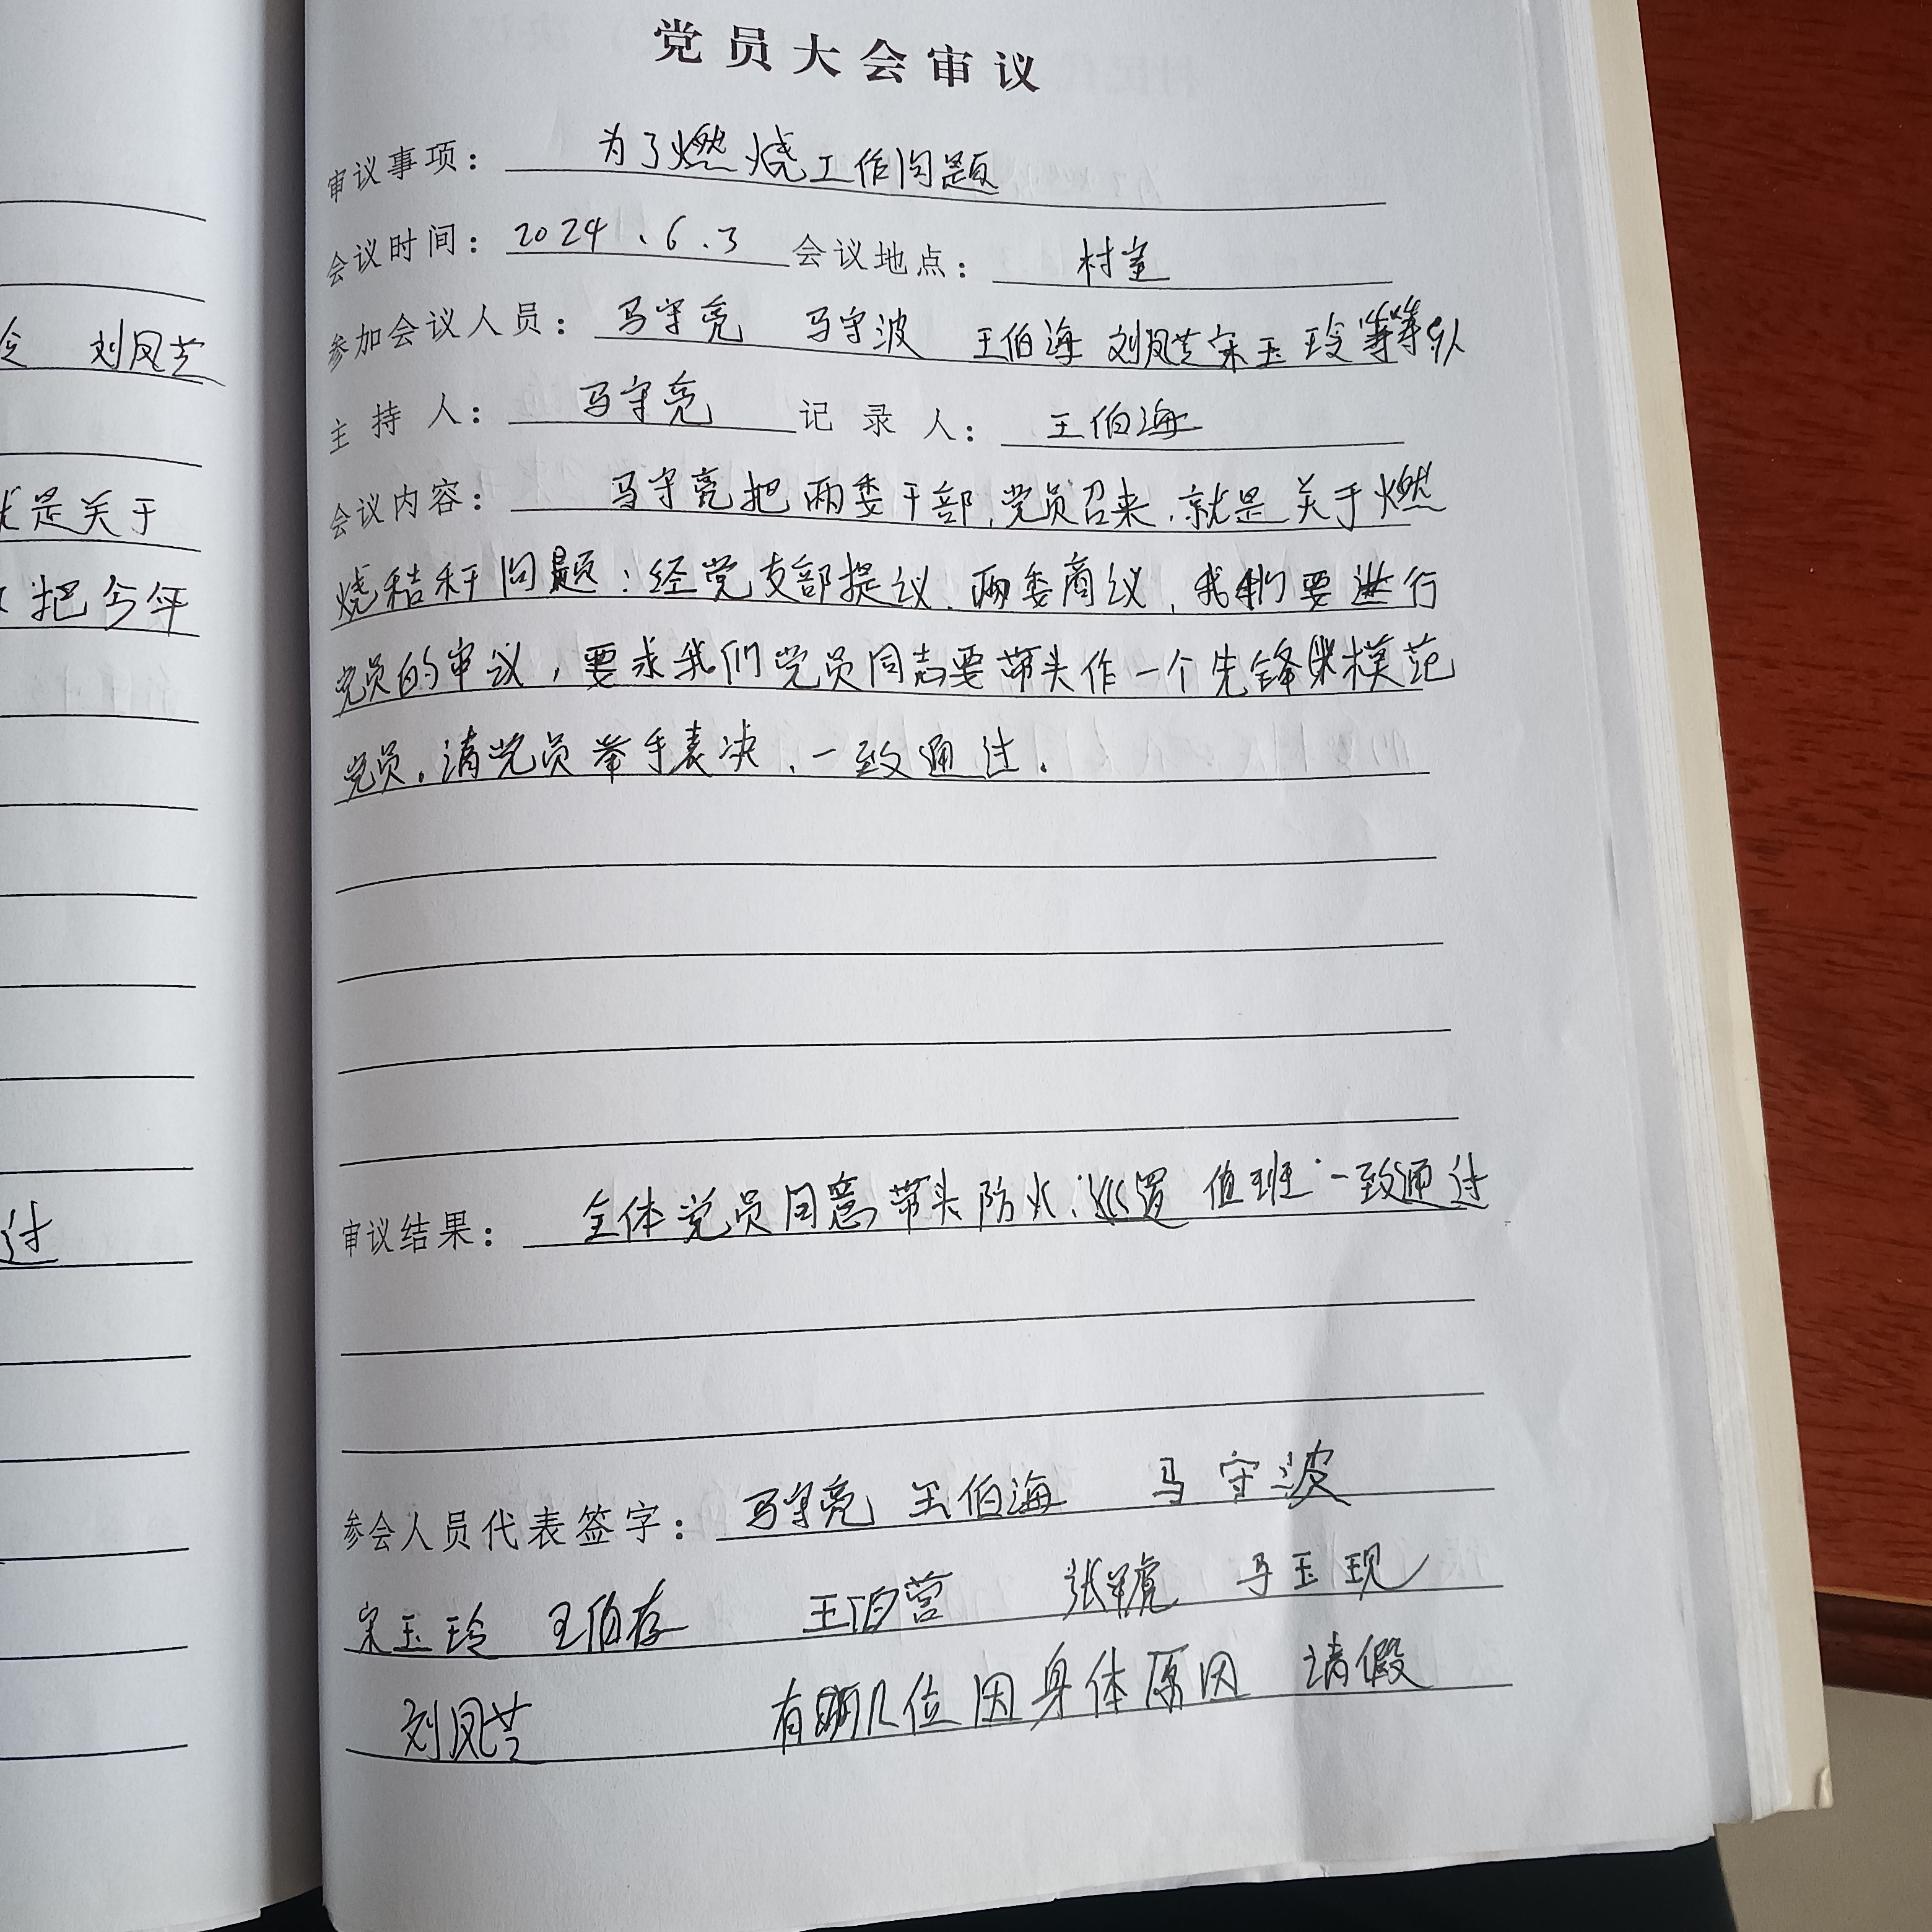 令 刘凤芝
就是关于
把今年
过
党员大会审议
审议事项： 为了燃烧工作问题
会议时间：2024.6.3 会议地点： 村室
参加会议人员： 马守亮 马守波 王伯海 刘凤芝 宋玉玲 等等
主持人： 马守亮 记录人： 王伯海
会议内容： 马守亮把两委干部，党员召来，就是关于燃
烧秸秆问题：经党支部提议，两委商议，我们要进行
党员的审议，要求我们党员同志要带头作一个先锋模范
党员。请党员举手表决，一致通过。
审议结果： 全体党员同意带头防火，巡逻 值班 一致通过
参会人员代表签字： 马守亮 王伯海 马守波
宋玉玲 王伯存 王伯营 马玉现
刘凤芝 有几位因身体原因 请假